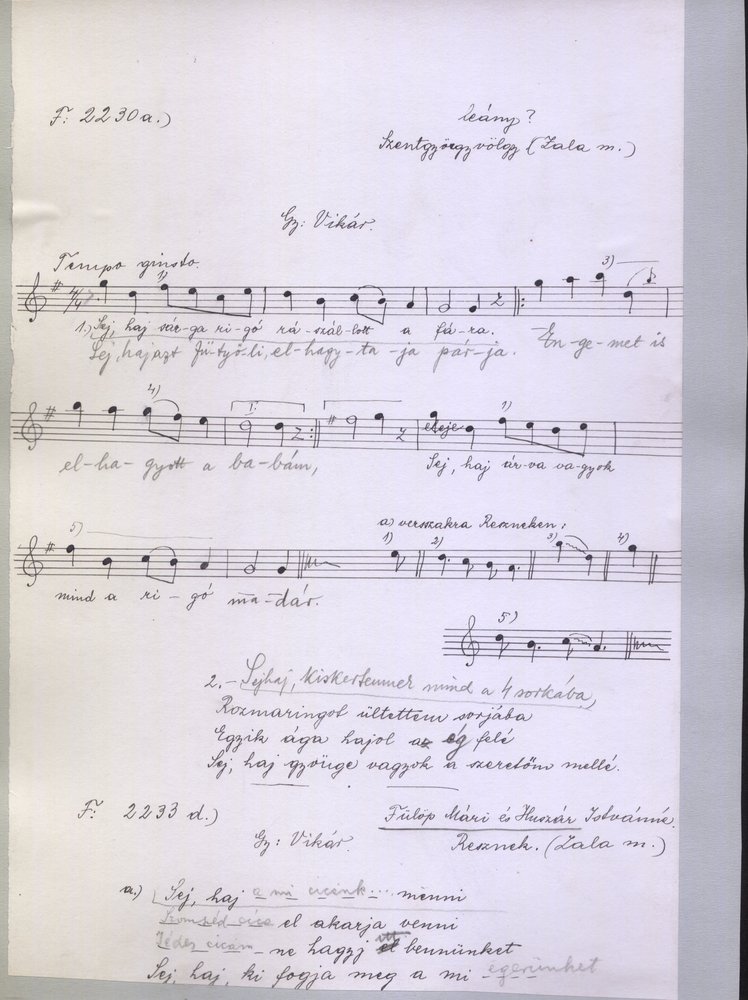 F: 2230 a.)
leány?
Szentgyörgyvölgy (Zala m.)
Gy: Vikár.
Tempo giusto.
1) 3)
1.) Sej, haj sár-ga ri-gó rá-szál-lott a fá-ra. En-ge-met is
Sej, haj azt fü-työ-li, el-hagy-ta-ja pár-ja.
4) I. eleje 1)
el-ha-gyott a ba-bám, Sej, haj ár-va va-gyok
5) a) versszakra Reszneken:
1) 2) 3) 4)
mind a ri-gó ma-dár.
5)
2.- Sejhaj, kiskertemnek mind a 4 sorkába,
Rozmaringot ültettem sorjába
Egyik ága hajol az ég felé
Sej, haj gyönge vagyok a szeretőm mellé.
F: 2233 d.)
Fülöp Mári és Huszár Istvánné.
Gy: Vikár.
Resznek. (Zala m.)
a.) Sej, haj a mi cicánk... menni
Szomszéd cica el akarja venni
Zédes cicám - ne hagyj itt bennünket
Sej, haj, ki fogja meg a mi egerünket